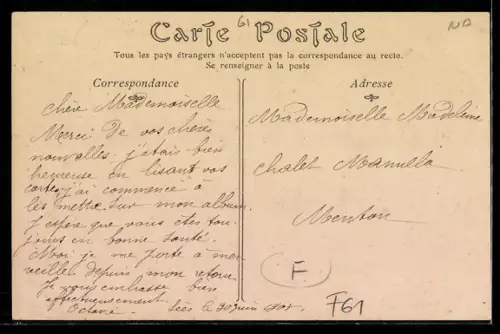 61
ND
Carte Postale
Tous les pays étrangers n'acceptent pas la correspondance au recto.
Se renseigner à la poste
Correspondance
Adresse
Chère Mademoiselle
Merci de vos chères
nouvelles j'étais bien
heureuse en lisant vos
cartes j'ai commencé à
les mettre sur mon album
J'espère que vous êtes tou-
jours en bonne santé.
Moi je me porte à mer-
veilles depuis mon retour
Je vous embrasse bien
affectueusement
Octavie
le 30 juin
Mademoiselle Madeleine
chalet
Menton
F
F61